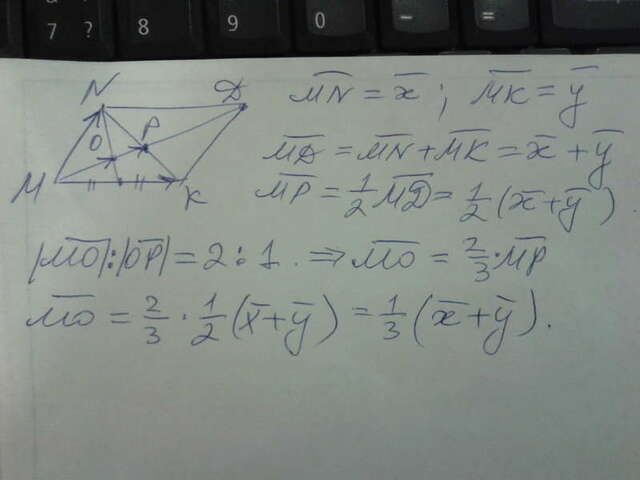 7 ? 8 9 0 - =
N D
P
O
M K
MN̅ = x̅ ; MK̅ = y̅
MD̅ = MN̅ + MK̅ = x̅ + y̅
MP̅ = 1/2 MD̅ = 1/2 (x̅ + y̅).
|MO̅| : |OP̅| = 2 : 1. ⇒ MO̅ = 2/3 · MP̅
MO̅ = 2/3 · 1/2 (x̅ + y̅) = 1/3 (x̅ + y̅).